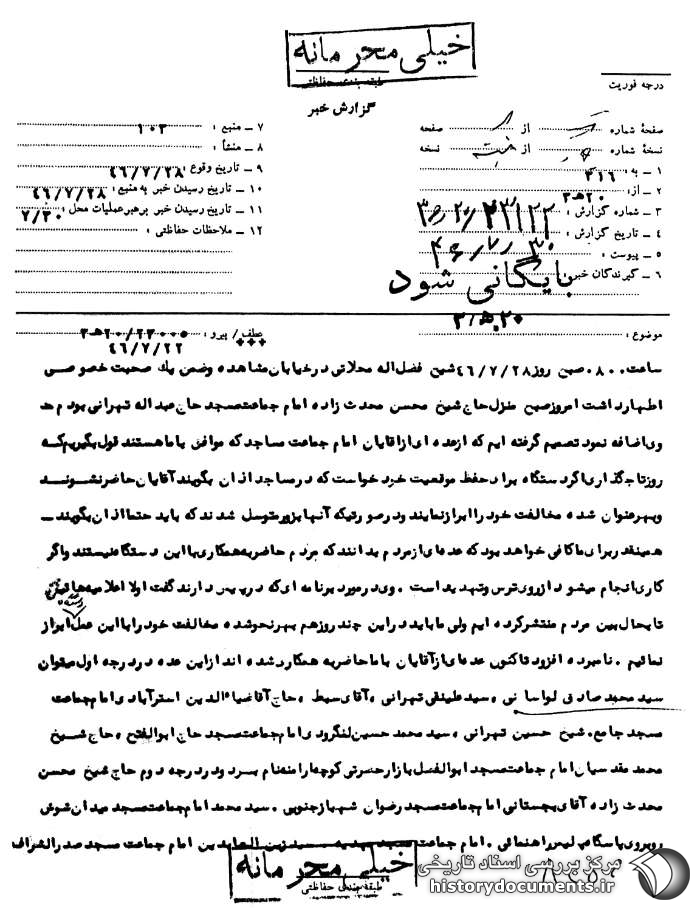 خیلی محرمانه
طبقه بندی حفاظتی
گزارش خبر
درجه فوریت
صفحهٔ شماره از صفحه
نسخهٔ شماره از نسخه
۱ ـ به : ۳۱۶
۲ ـ از : ۲۰ ه‍ ۳
۳ ـ شماره گزارش :
۴ ـ تاریخ گزارش : ۴۶/۷/۳۰
۵ ـ پیوست :
۶ ـ گیرندگان خبر :
بایگانی شود
۷ ـ منبع : ۱۰۳
۸ ـ منشأ :
۹ ـ تاریخ وقوع : ۴۶/۷/۲۸
۱۰ ـ تاریخ رسیدن خبر به منبع : ۴۶/۷/۲۸
۱۱ ـ تاریخ رسیدن خبر برهبر عملیات محل : ۷/۳۰
۱۲ ـ ملاحظات حفاظتی :
موضوع :
عطف / پیرو : ۲۳۰۰۵/۲۰ ه‍ ۳
۴۶/۷/۲۲
ساعت ۰۸۰۰ صبح روز ۴۶/۷/۲۸ شیخ فضل اله محلاتی در خیابان مشاهده وضمن یك صحبت خصوصی
اظهارداشت امروز صبح منزل حاج شیخ محسن محدث زاده امام جماعت مسجد حاج عبداله تهرانی بودم
وی اضافه نمود تصمیم گرفته ایم که ازعده ای از اقایان امام جماعت مساجد که موافق با ما هستند قول بگیریم که
روز تاجگذاری اگر دستگاه برای حفظ موقعیت خود خواست که در مساجد اذان بگویند آقایان حاضر نشوند
وبهر عنوان شده مخالفت خود را ابراز نمایند و در صورتیکه آنها بزور متوسل شدند که باید حتما اذان بگویند ـ
همینقدر برای ما کافی خواهد بود که عده ای از مردم بدانند که مردم حاضر به همکاری با این دستگاه نیستند و اگر
کاری انجام میشود از روی ترس و تهدید است . وی در مورد برنامه ای که در پیش دارند گفت اولا اعلامیه هائی
تابحال بین مردم منتشر کرده ایم ولی ما باید در این چند روز هم بهر نحو شده مخالفت خود را با این عمل ابراز
نمائیم . نامبرده افزود تاکنون عده ای از آقایان با ما حاضر به همکار شده اند از این عده در درجه اول میتوان
سید محمد صادق لواسانی ، سید علینقی تهرانی ، آقای سبط ، حاج آقا ضیاء الدین استرآبادی امام جماعت
مسجد جامع ، شیخ حسین تهرانی ، سید محمد حسین لنگرودی امام جماعت مسجد حاج ابوالفتح ، حاج شیخ
محمد مقدسیان امام جماعت مسجد ابوالفضل بازار حضرتی کوچه ارامنه نام برد و در درجه دوم حاج شیخ محسن
محدث زاده آقای بجستانی امام جماعت مسجد رضوان شهباز جنوبی . سید محمد امام جماعت مسجد میدان شوش
روبروی پاسگاه پلیس راهنمائی . امام جماعت مسجد مهدیه سید زین العابدین امام جماعت مسجد صدرالشراف
خیلی محرمانه
طبقه بندی حفاظتی
مرکز بررسی اسناد تاریخی
historydocuments.ir